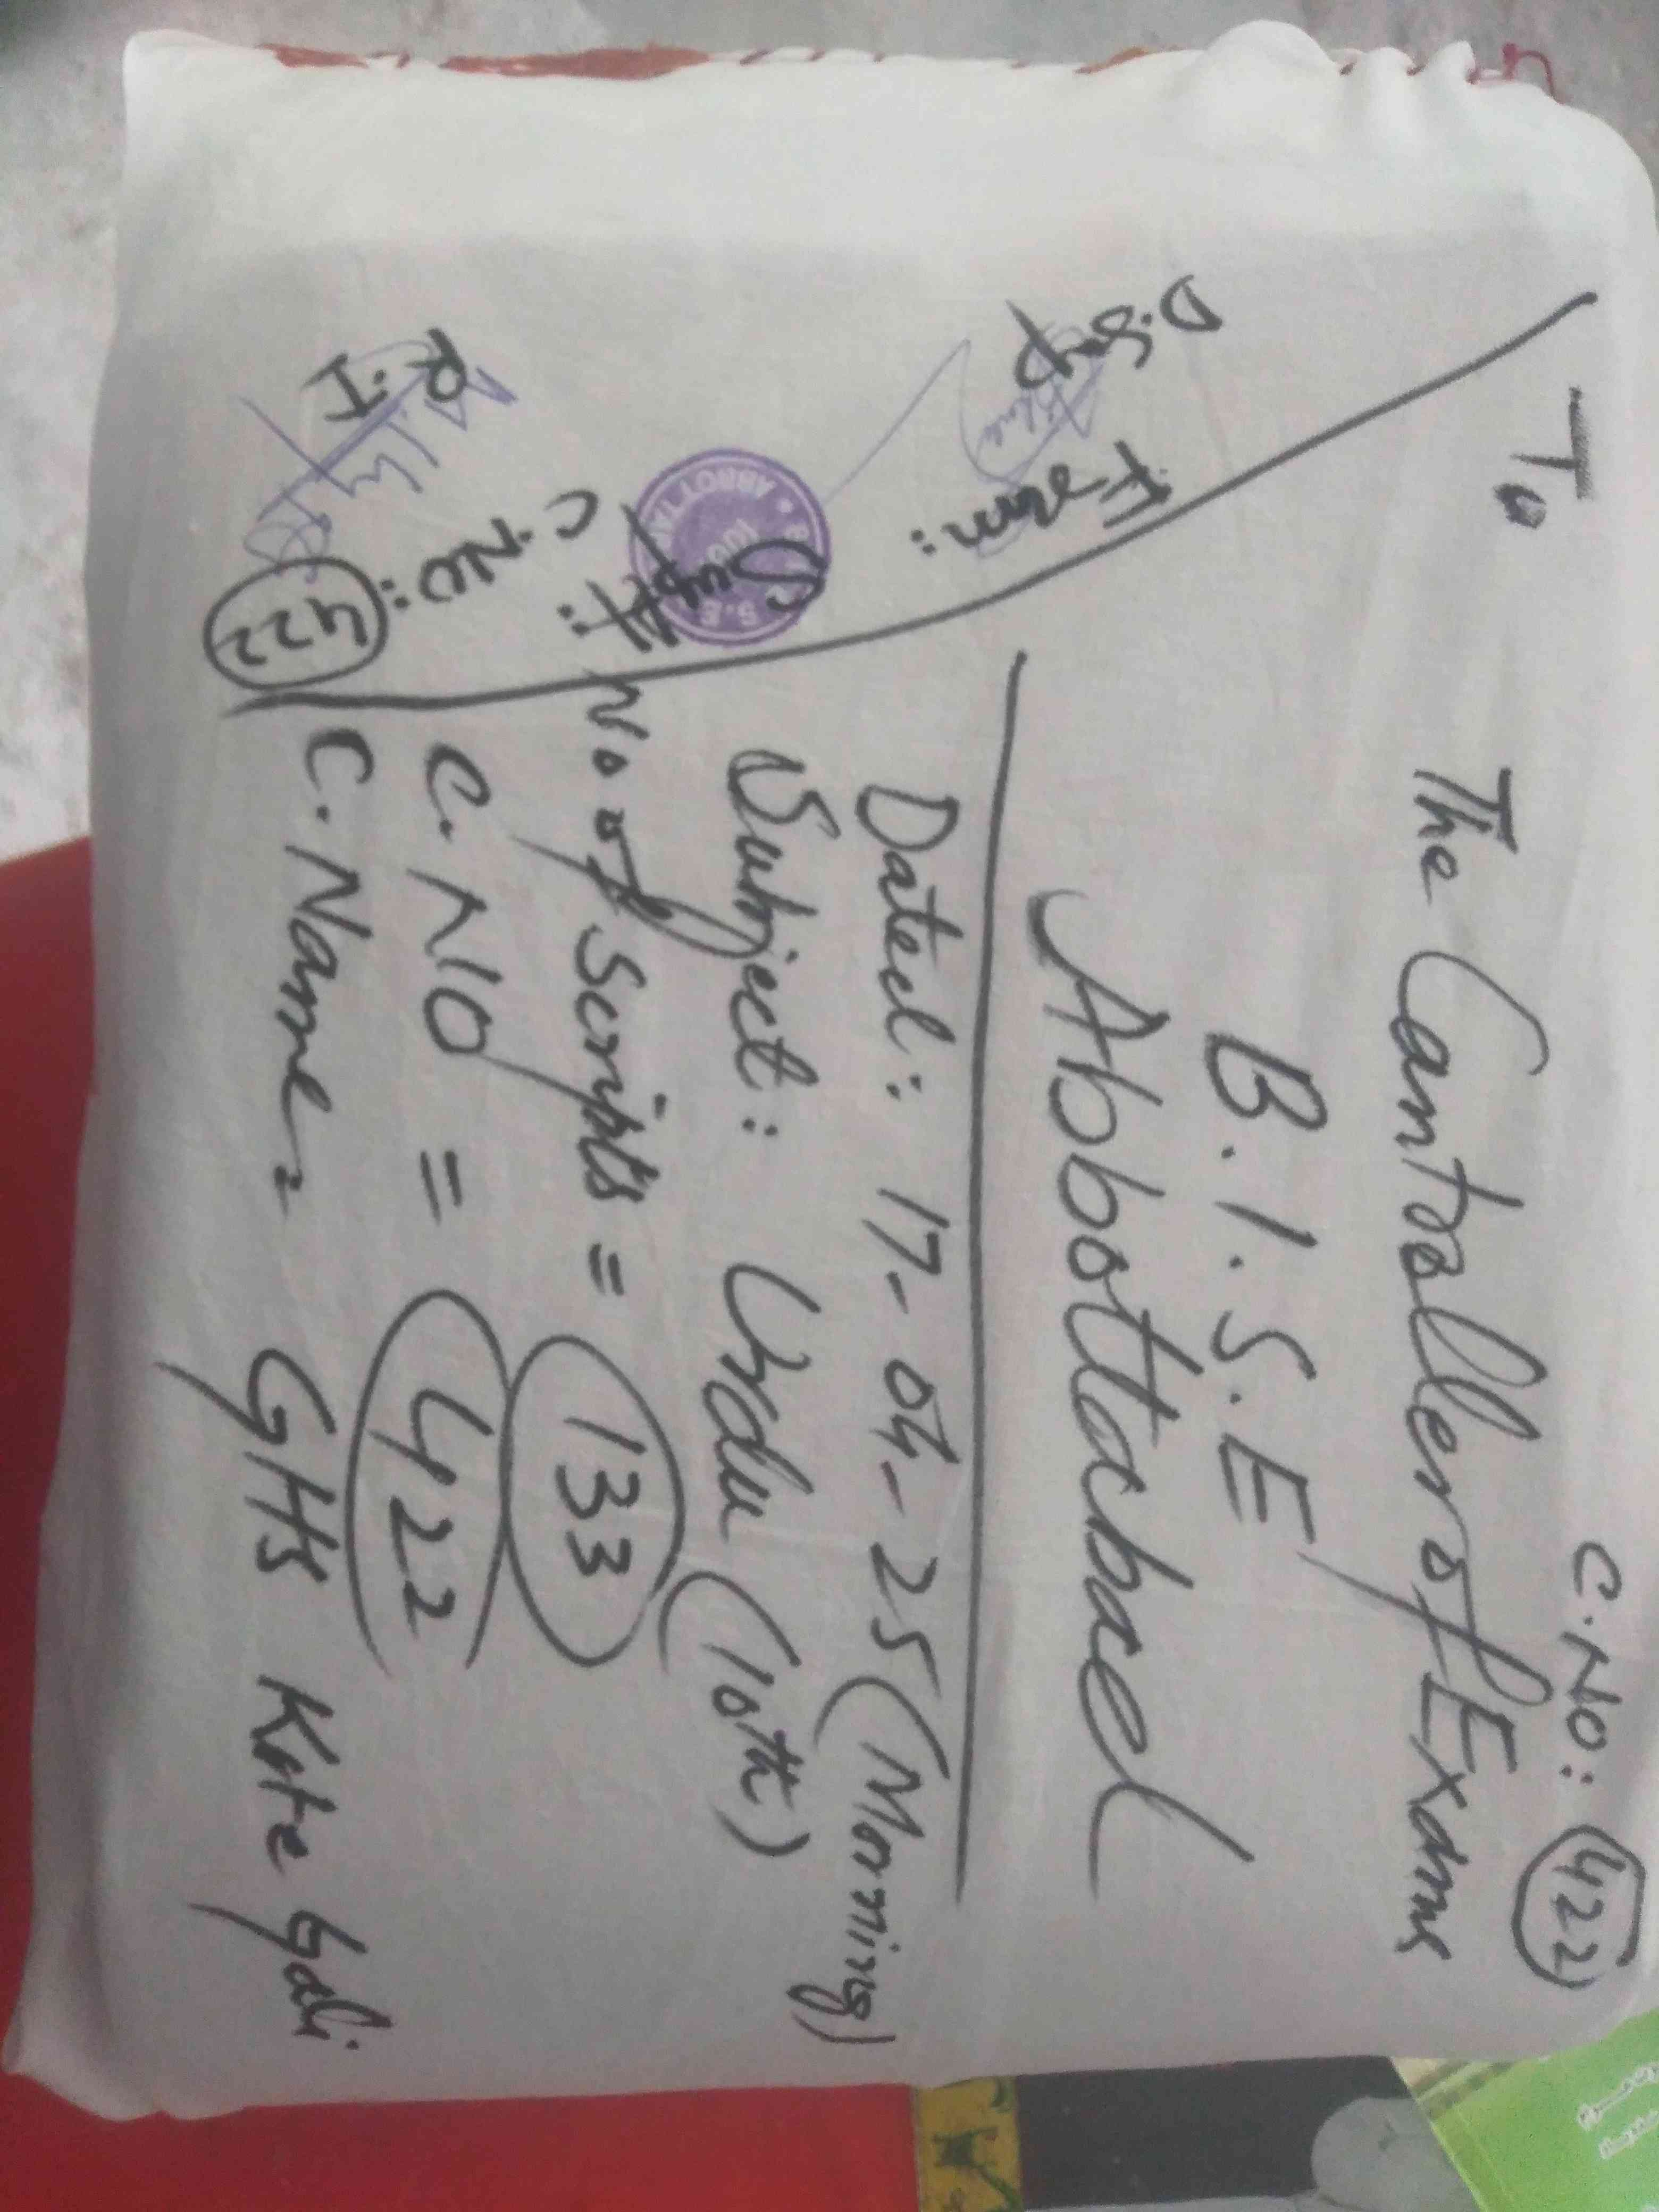 C.No: 422
To
The Controller of Exams
B.I.S.E
Abbottabad
Dated: 17-04-25 (Morning)
Subject: Urdu (10th)
No of Scripts = 133
C.No = 422
C.Name = GHS Kate Gali
From:
D.Sup
Supdt:
R.I
C.No: 422